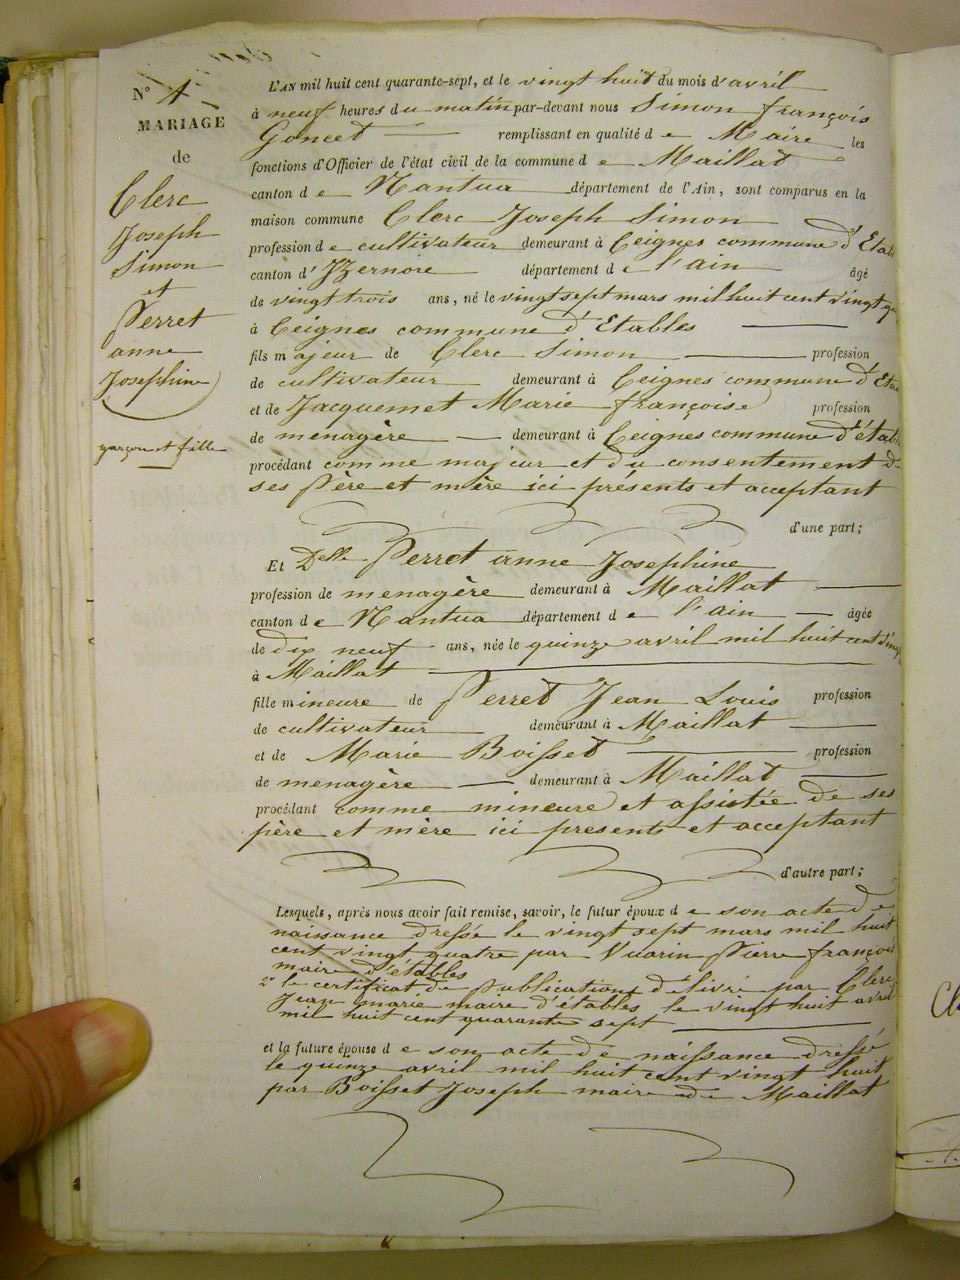 N° 4
MARIAGE
de
Clerc
Joseph
Simon
et
Perret
anne
Josephine
garçon et fille
L'AN mil huit cent quarante-sept, et le vingt huit du mois d'avril
à neuf heures du matin par-devant nous Simon françois
Goncet remplissant en qualité de Maire les
fonctions d'Officier de l'état civil de la commune de Maillat
canton de Nantua département de l'Ain, sont comparus en la
maison commune Clerc Joseph Simon
profession de cultivateur demeurant à Ceignes commune d'Etab
canton d'Izernore département de l'ain âgé
de vingt trois ans, né le vingt sept mars mil huit cent vingt qu
à Ceignes commune d'Etables
fils majeur de Clerc Simon profession
de cultivateur demeurant à Ceignes commune d'Eta
et de Jacquemet Marie françoise profession
de menagère demeurant à Ceignes commune d'étab
procédant comme majeur et du consentement de
ses père et mère ici présents et acceptant
d'une part;
Et Delle Perret anne Josephine
profession de menagère demeurant à Maillat
canton de Nantua département de l'ain âgée
de dix neuf ans, née le quinze avril mil huit cent vingt
à Maillat
fille mineure de Perret Jean Louis profession
de cultivateur demeurant à Maillat
et de Marie Boisset profession
de menagère demeurant à Maillat
procédant comme mineure et assistée de ses
père et mère ici presents et acceptant
d'autre part;
Lesquels, après nous avoir fait remise, savoir, le futur époux de son acte de
naissance dressé le vingt sept mars mil huit
cent vingt quatre par Vuarin Pierre françois
maire d'étables
2° le certificat de publications délivré par Clerc
Jean marie maire d'étables le vingt huit avril
mil huit cent quarante sept
et la future épouse de son acte de naissance dressé
le quinze avril mil huit cent vingt huit
par Boisset Joseph maire de Maillat